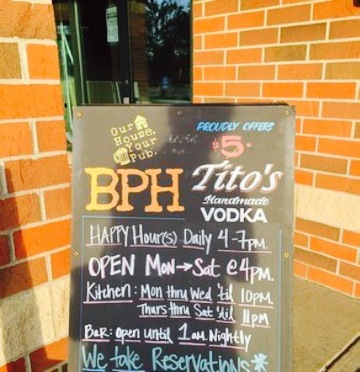 Our
House.
Your
Pub.
BPH
PROUDLY OFFERS
$5
Tito's
Handmade
VODKA
HAPPY Hour(s) Daily 4-7pm.
OPEN Mon→Sat @4pm.
Kitchen: Mon thru Wed 'til 10pm
Thurs thru Sat 'til 11pm
BAR: open until 1am. Nightly
We take Reservations*